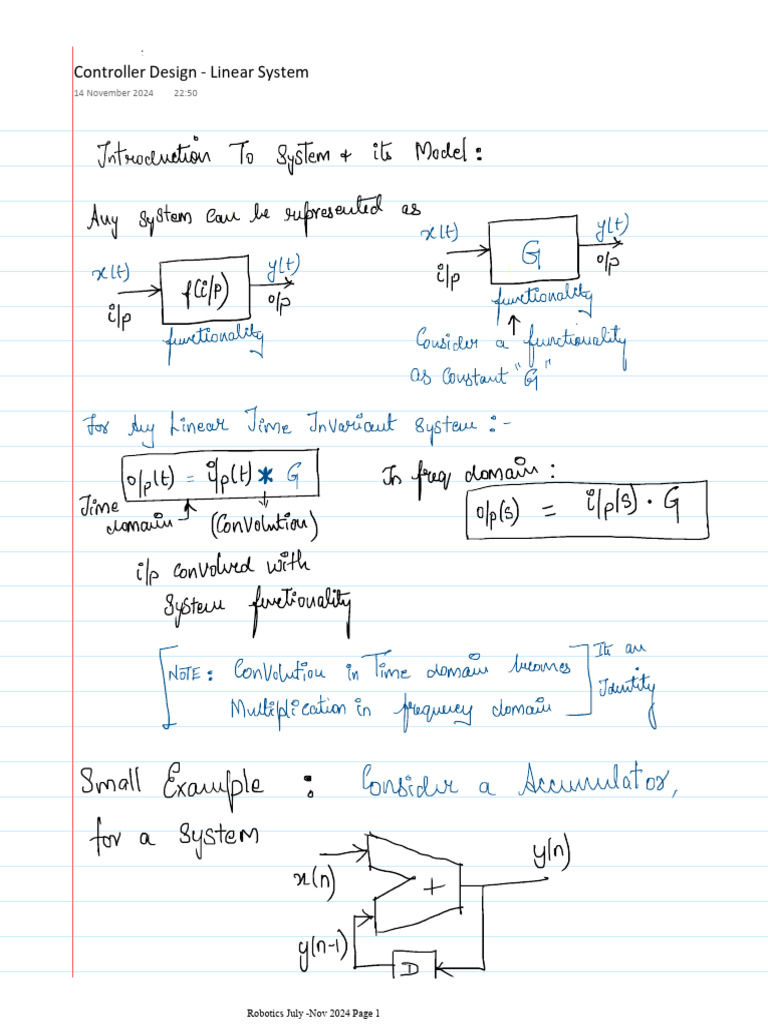 Controller Design - Linear System
14 November 2024 22:50
Introduction To System & its Model:
Any system can be represented as
x(t)
i/p
f(i/p)
y(t)
o/p
functionality
x(t)
i/p
G
y(t)
o/p
functionality
↑
Consider a functionality
as constant "G"
For Any Linear Time Invariant System :-
o/p(t) = i/p(t) * G
Time
domain
(Convolution)
i/p convolved with
system functionality
In freq domain:
o/p(s) = i/p(s) · G
NOTE: Convolution in Time domain becomes
Multiplication in frequency domain
Its an
Identity
Small Example : Consider a Accumulator,
for a system
x(n)
+
y(n)
y(n-1)
D
Robotics July -Nov 2024 Page 1